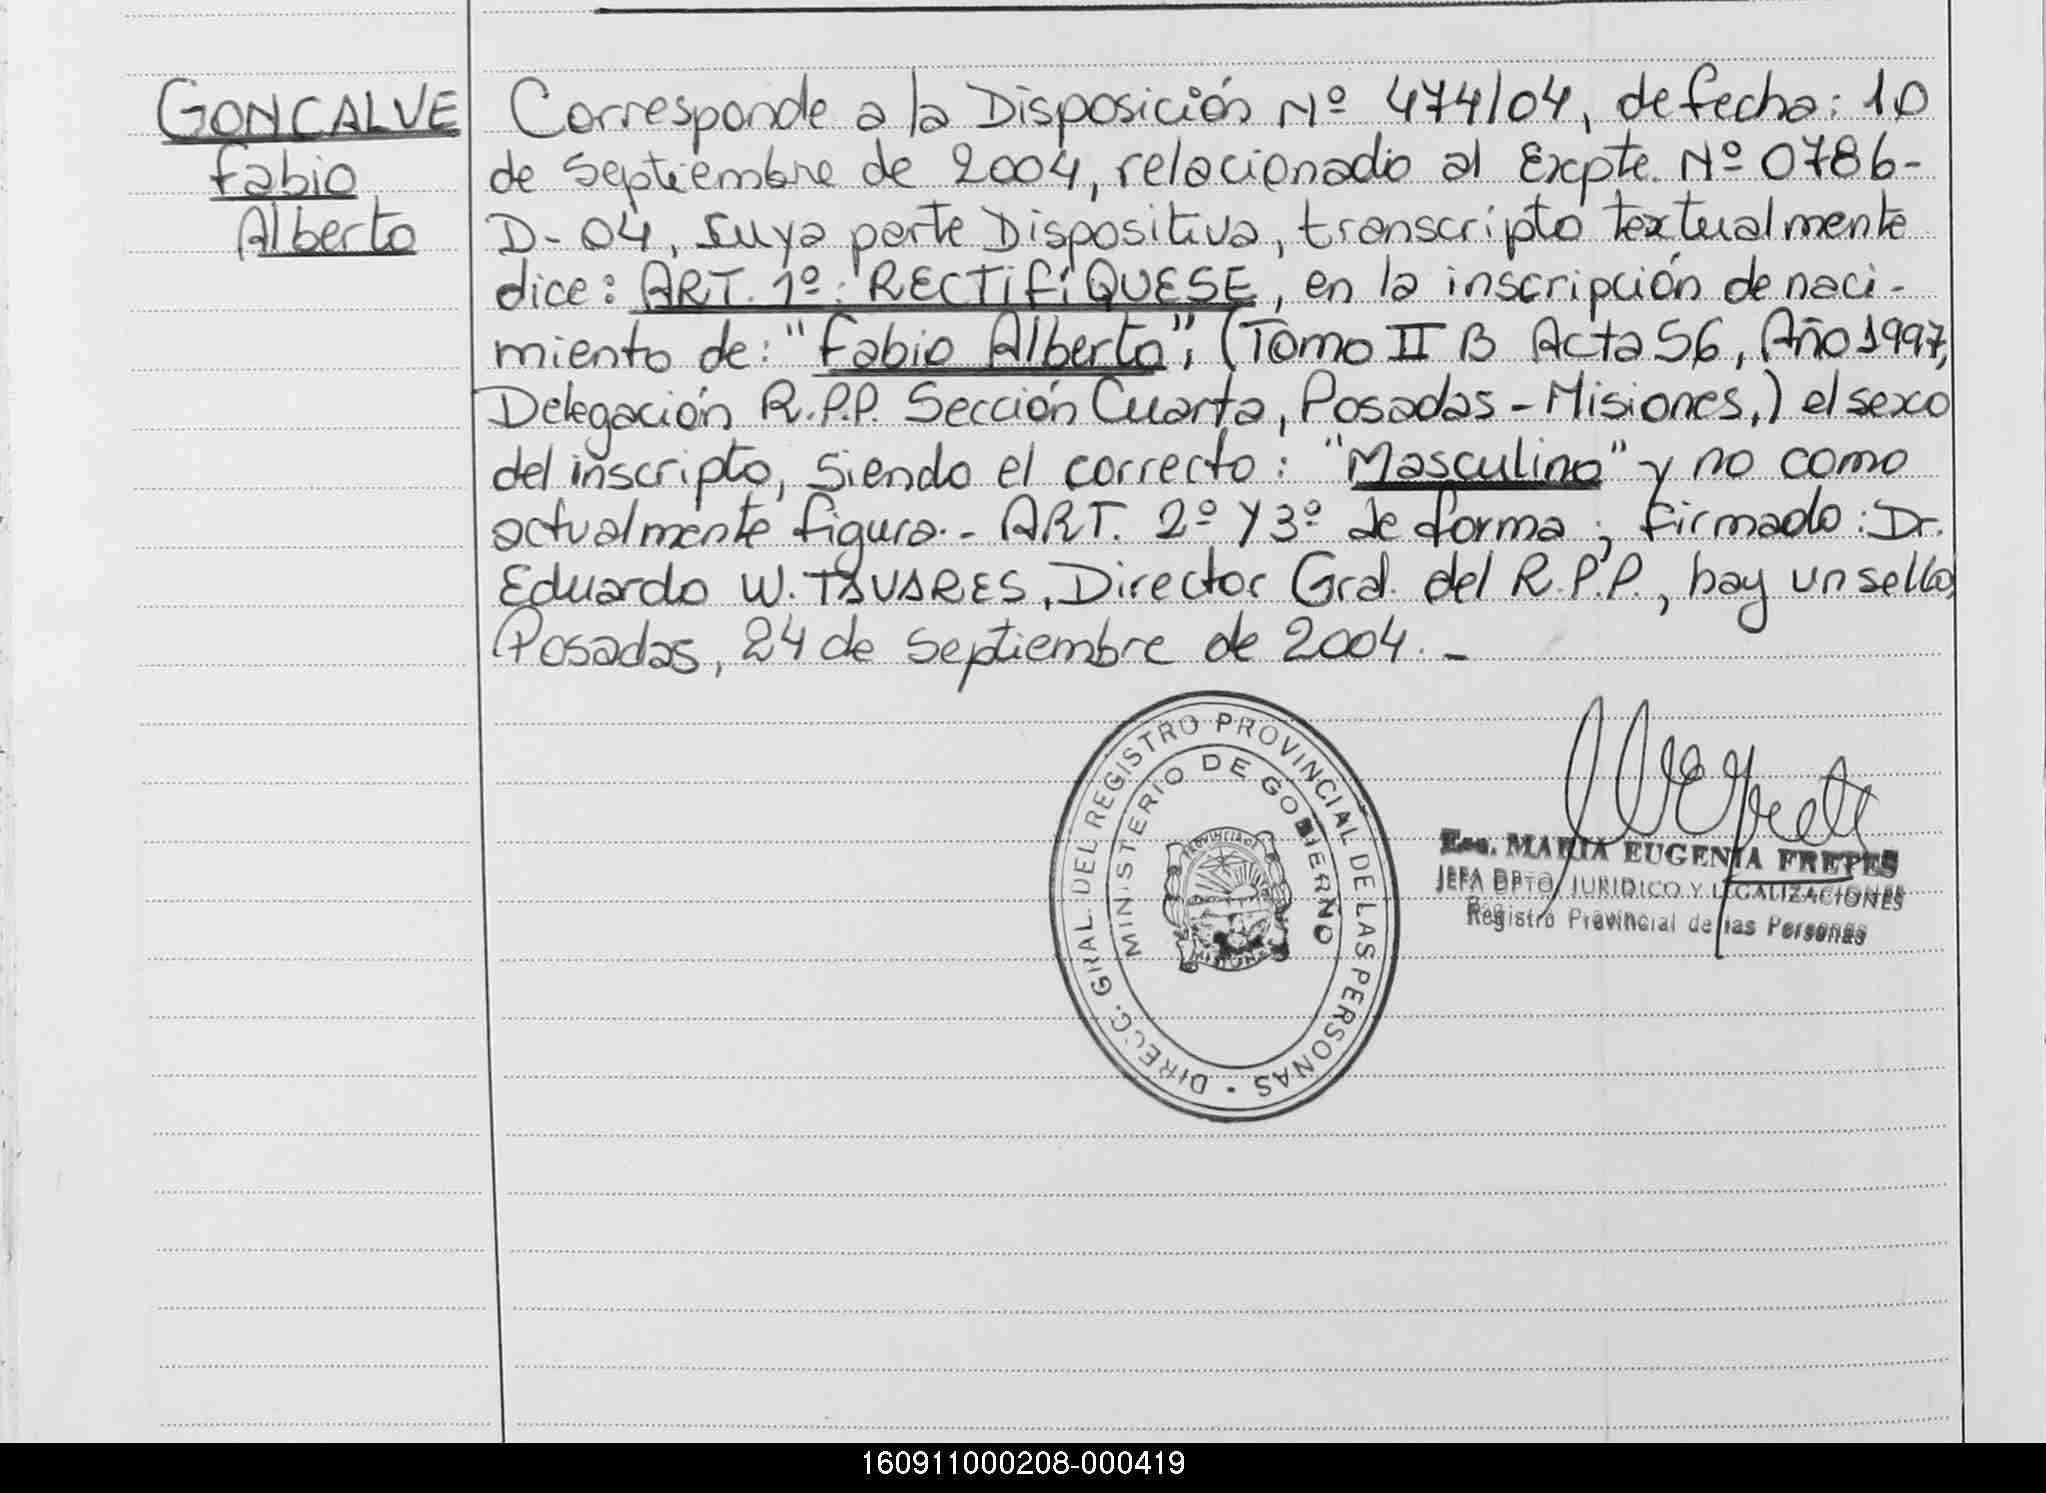 GONCALVE
Fabio
Alberto
Corresponde a la Disposición Nº 474/04, de fecha: 10
de Septiembre de 2004, relacionado al Expte. Nº 0786-
D-04, suya parte Dispositiva, transcripto textualmente
dice: ART. 1º: RECTIFÍQUESE, en la inscripción de naci-
miento de: "Fabio Alberto", (Tomo II B Acta 56, Año 1997,
Delegación R.P.P. Sección Cuarta, Posadas - Misiones,) el sexo
del inscripto, siendo el correcto: "Masculino" y no como
actualmente figura.- ART. 2º y 3º de forma; firmado: Dr.
Eduardo W. TAVARES, Director Gral. del R.P.P., hay un sello,
Posadas, 24 de Septiembre de 2004.-
DIRECC. GRAL. DEL REGISTRO PROVINCIAL DE LAS PERSONAS -
MINISTERIO DE GOBIERNO
PROVINCIA DE
MISIONES
Esc. MARIA EUGENIA FRETES
JEFA DPTO. JURIDICO Y LEGALIZACIONES
Registro Provincial de las Personas
160911000208-000419